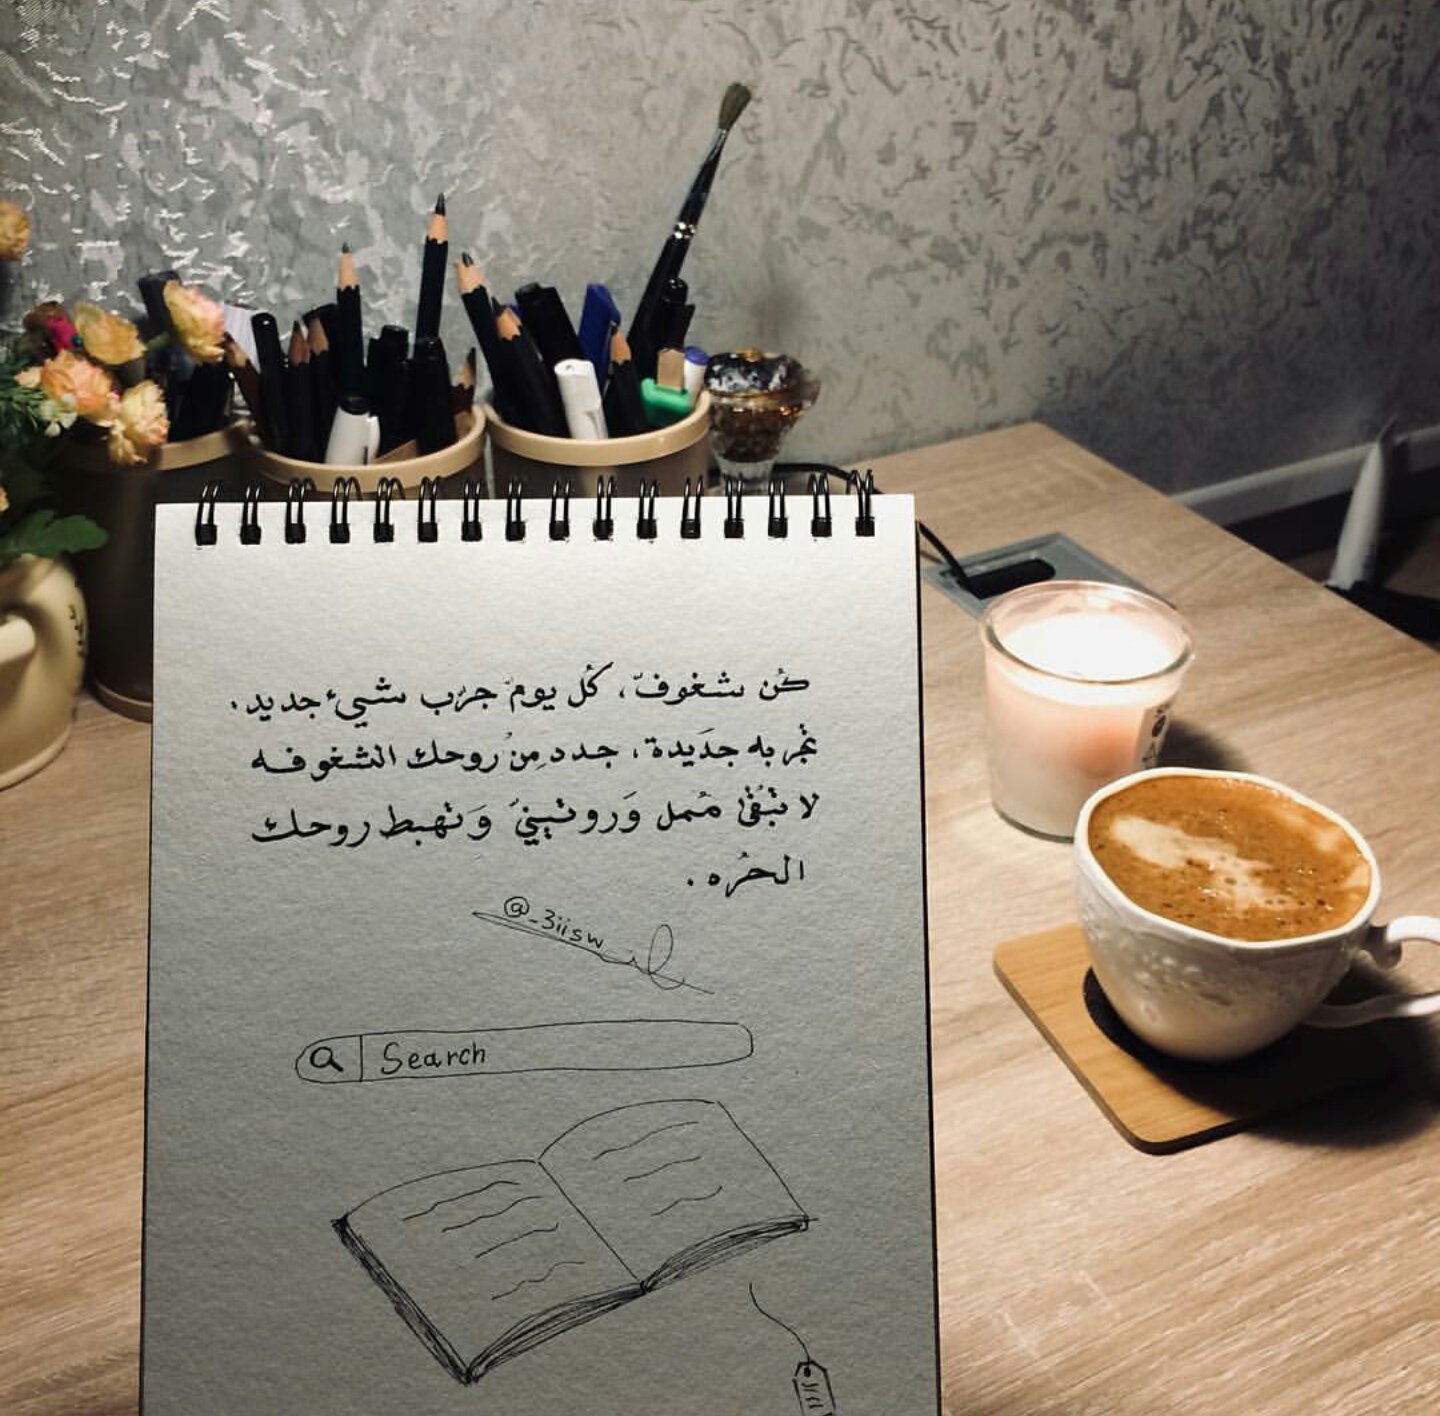 كُن شغوفّ، كُل يومّ جرّب شيئ جديد.
تجربه جدَيدة، جدد مِنُ روحك الشغوفه
لا تبُقىٰ مُمل وَروتينيّ وَتهبط روحك
الحُره.
@_3iisw
Search